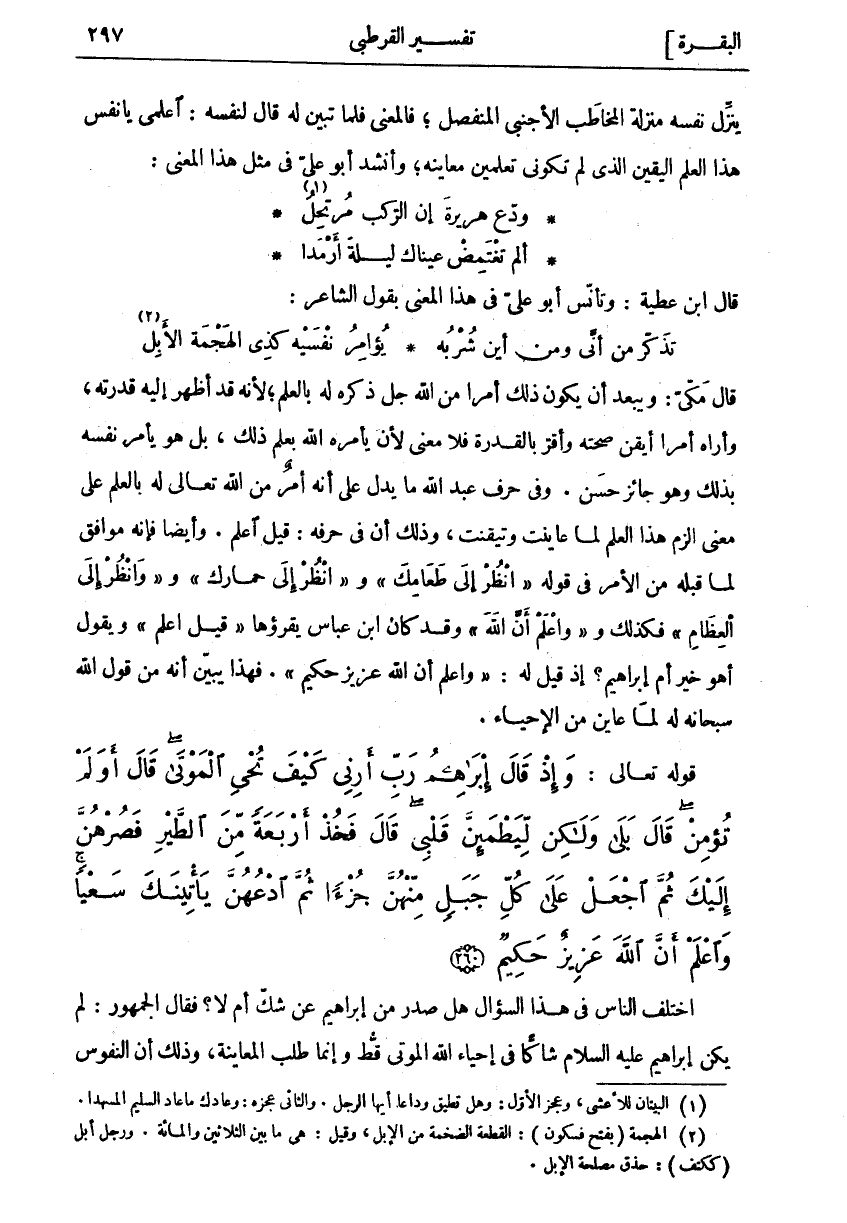 البقــرة ]
تفســير القرطبى
٢٩٧
ينزِّل نفسه منزلة المخاطَب الأجنبى المنفصل ؛ فالمعنى فلما تبين له قال لنفسه : آعلمى يانفس
هذا العلم اليقين الذى لم تكونى تعلمين معاينه؛ وأنشد أبو علىّ فى مثل هذا المعنى :
* ودّع هريرةَ إن الرّكب مُرتحِلُ * (١)
* ألم تغْتَمِضْ عيناك ليــلةَ أَرْمَدا *
قال ابن عطية : وتأنّس أبو علىّ فى هذا المعنى بقول الشاعر :
تذكّر من أنَّى ومن أين شُرْبُه * يُؤامِرُ نفْسَيْه كذى الهَجْمَة الأَبِل (٢)
قال مَكّىّ : ويبعد أن يكون ذلك أمرا من الله جل ذكره له بالعلم؛ لأنه قد أظهر إليه قدرته،
وأراه أمرا أيقن صحته وأقرّ بالقــدرة فلا معنى لأن يأمره الله بعلم ذلك ، بل هو يأمر نفسه
بذلك وهو جائز حسَن . وفى حرف عبد الله ما يدل على أنه أمرٌ من الله تعــالى له بالعلم على
معنى الزم هذا العلم لمــا عاينت وتيقنت ، وذلك أن فى حرفه : قيل آعلم . وأيضا فإنه موافق
لمــا قبله من الأمر فى قوله « انْظُرْ إلَى طَعَامِكَ » و « انْظُرْ إلَى حمــارك » و « وَانْظُرْ إلَى
ٱلعِظَامِ » فكذلك و « واعْلَمْ أَنَّ اللَّهَ » وقــد كان ابن عباس يقرؤها « قيــل اعلم » ويقول
أهو خير أم إبراهيم؟ إذ قيل له : « واعلم أن الله عزيز حكيم » . فهذا يبيّن أنه من قول الله
سبحانه له لمــا عاين من الإحيــاء .
قوله تعــالى : وَإِذْ قَالَ إِبْرَٰهِـۧمُ رَبِّ أَرِنِى كَيْفَ تُحْىِ ٱلْمَوْتَىٰۖ قَالَ أَوَلَمْ
تُؤْمِنۖ قَالَ بَلَىٰ وَلَـٰكِن لِّيَطْمَئِنَّ قَلْبِىۖ قَالَ فَخُذْ أَرْبَعَةً مِّنَ ٱلطَّيْرِ فَصُرْهُنَّ
إِلَيْكَ ثُمَّ ٱجْعَــلْ عَلَىٰ كُلِّ جَبَــلٍ مِّنْهُنَّ جُزْءًا ثُمَّ ٱدْعُهُنَّ يَأْتِينَــكَ سَــعْيًاۚ
وَٱعْلَمْ أَنَّ ٱللَّهَ عَزِيزٌ حَكِيمٌ ﴿٢٦٠﴾
اختلف الناس فى هــذا السؤال هل صدر من إبراهيم عن شكّ أم لا؟ فقال الجمهور : لم
يكن إبراهيم عليه السلام شاكًّا فى إحياء الله الموتى قطُّ وإنما طلب المعاينة ، وذلك أن النفوس
(١) البيتان للأعشى ، وعجز الأوّل : وهل تطيق وداعا أيها الرجل . والثانى عجزه : وعادك ماعاد السليم المسهدا .
(٢) الهجمة (بفتح فسكون) : القطعة الضخمة من الإبل ، وقيل : هى ما بين الثلاثين والمــائة . ورجل أبل
(ككتف) : حذق مصلحة الإبل .